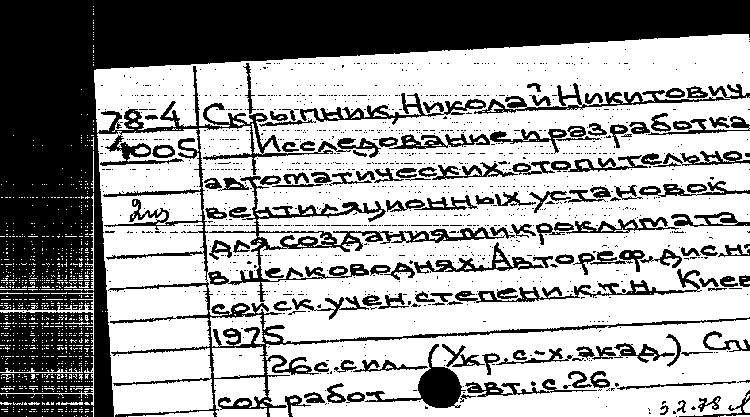 78-4 Скрыпник, Николай Никитович.
4005 Исследование и разработка
автоматических отопительно-
2из вентиляционных установок
для создания микроклимата
в шелководнях. Автореф. дис. на
соиск. учен. степени к.т.н. Киев
1975
26с. с ил. (Укр. с.-х. акад.). Спи
сок работ авт.: с. 26.
3.2.78